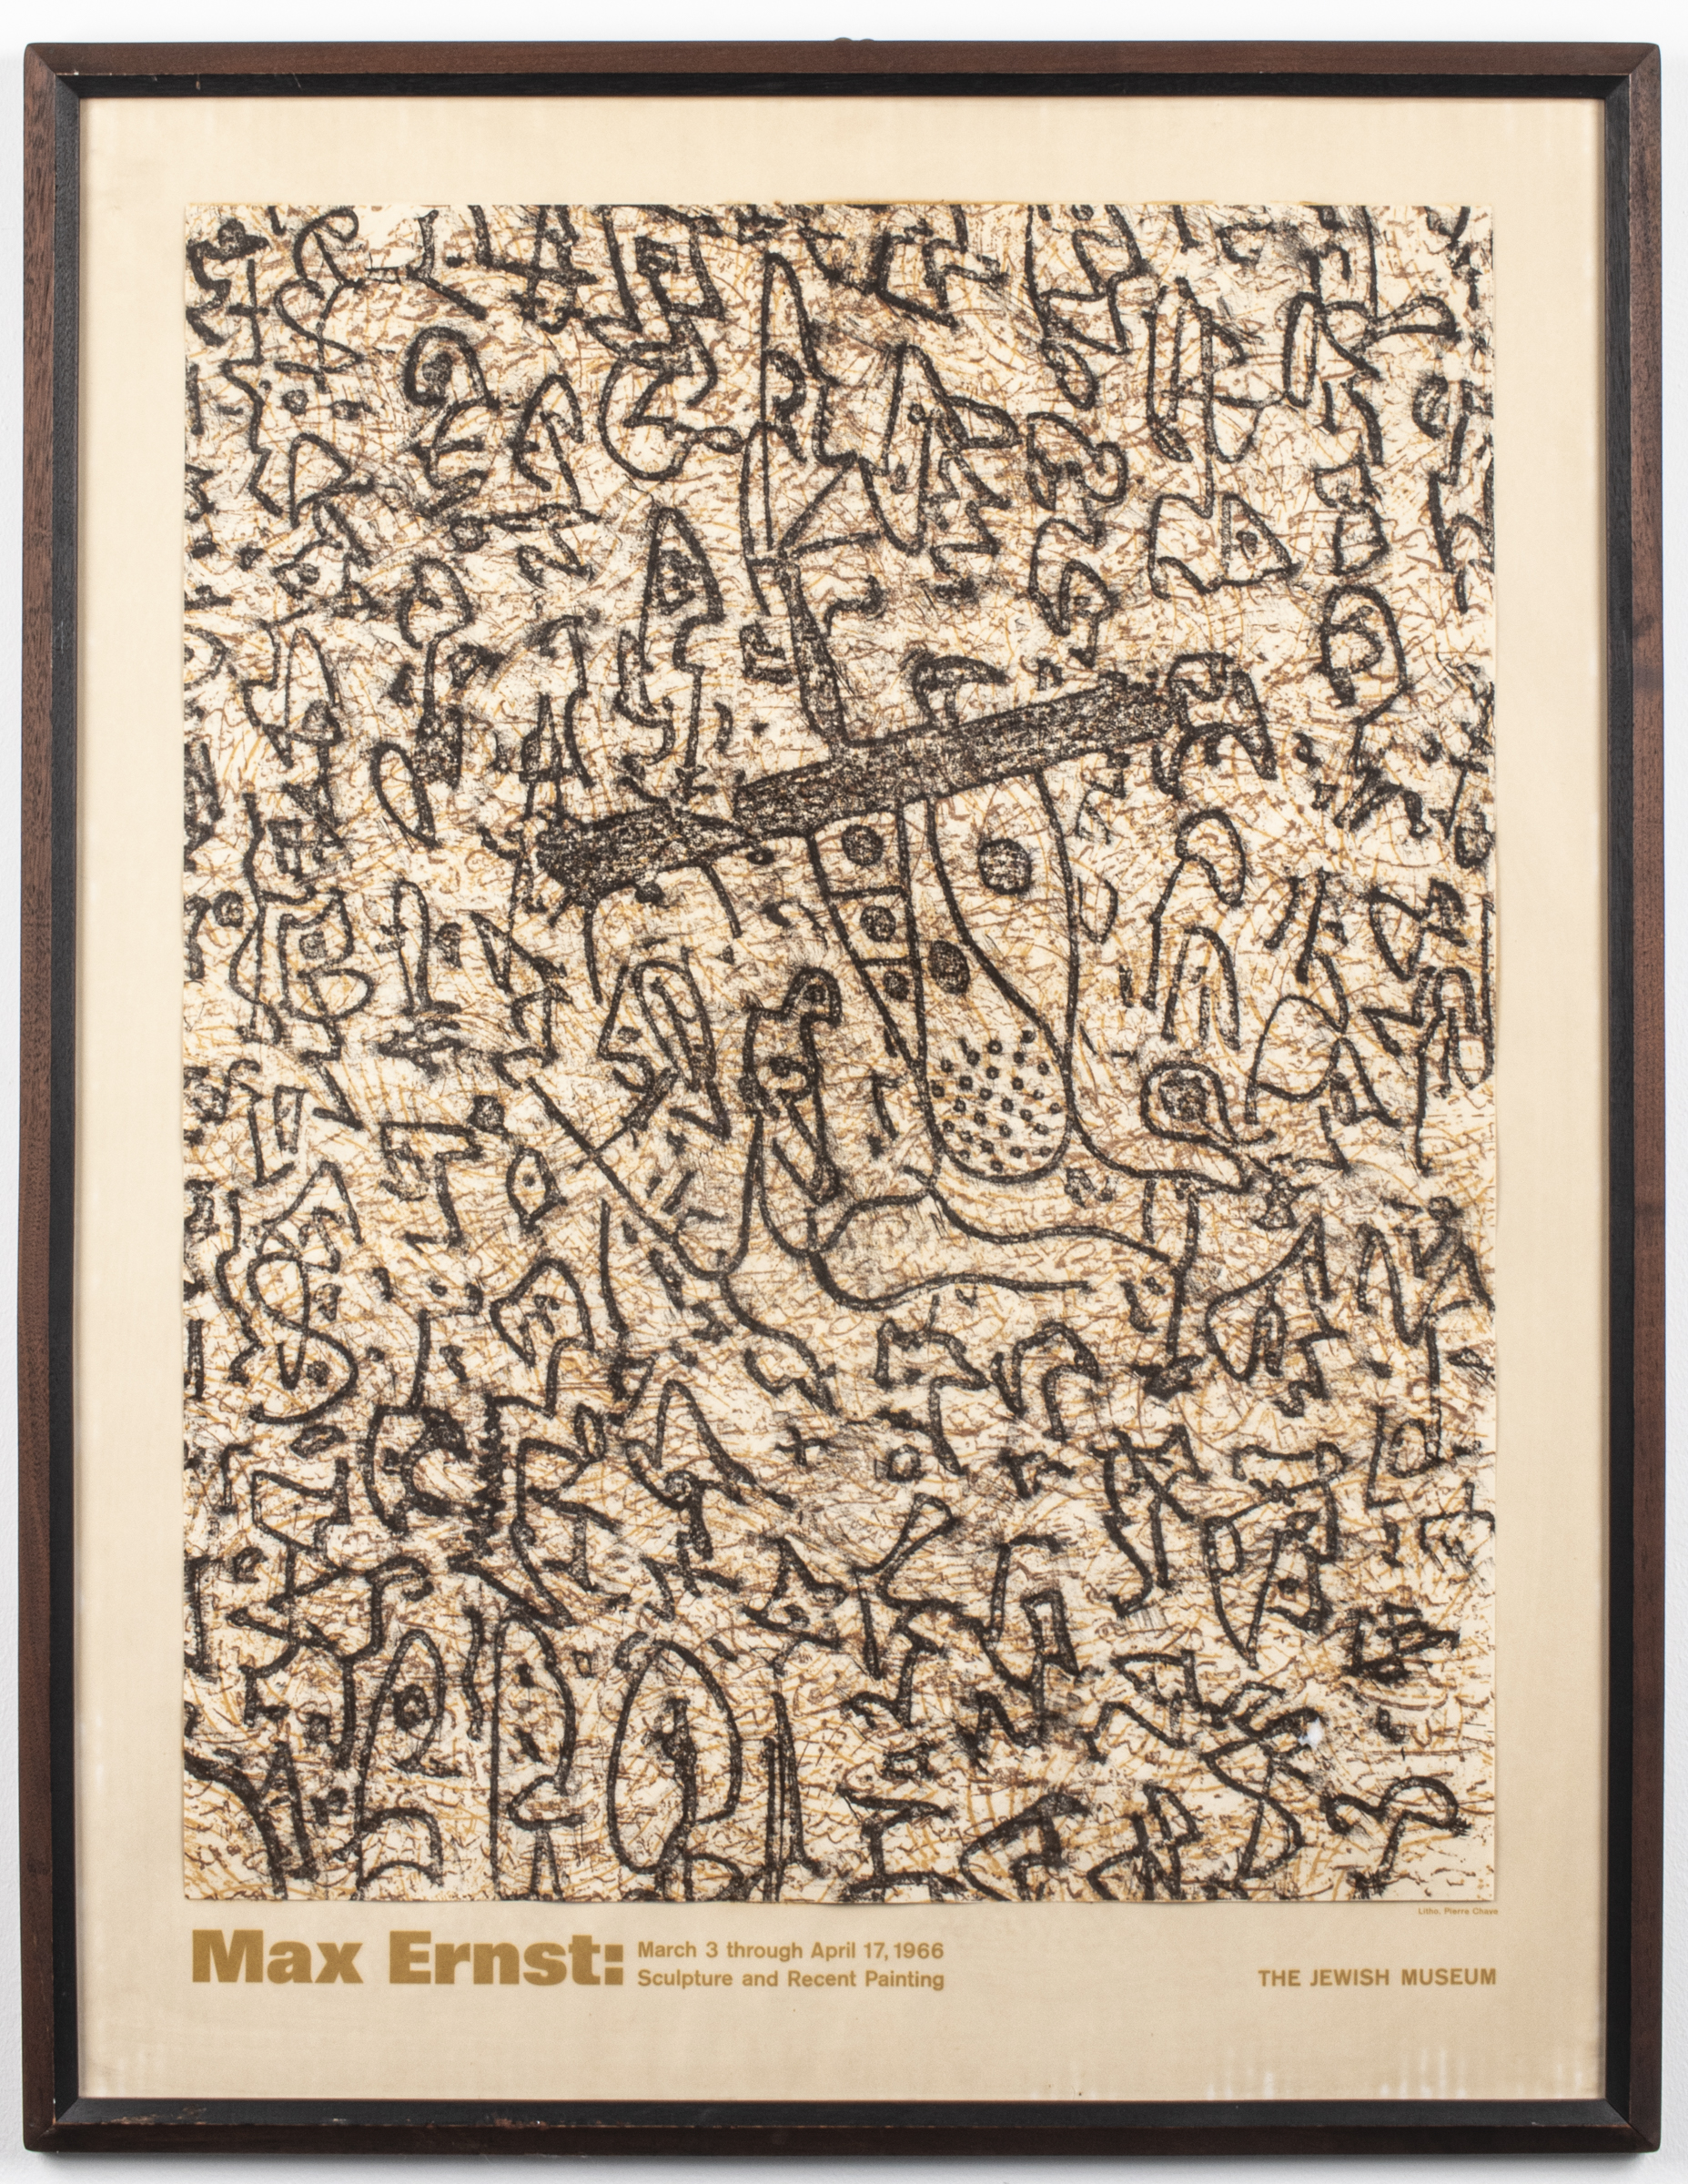 Litho. Pierre Chave
Max Ernst: March 3 through April 17, 1966
Sculpture and Recent Painting
THE JEWISH MUSEUM